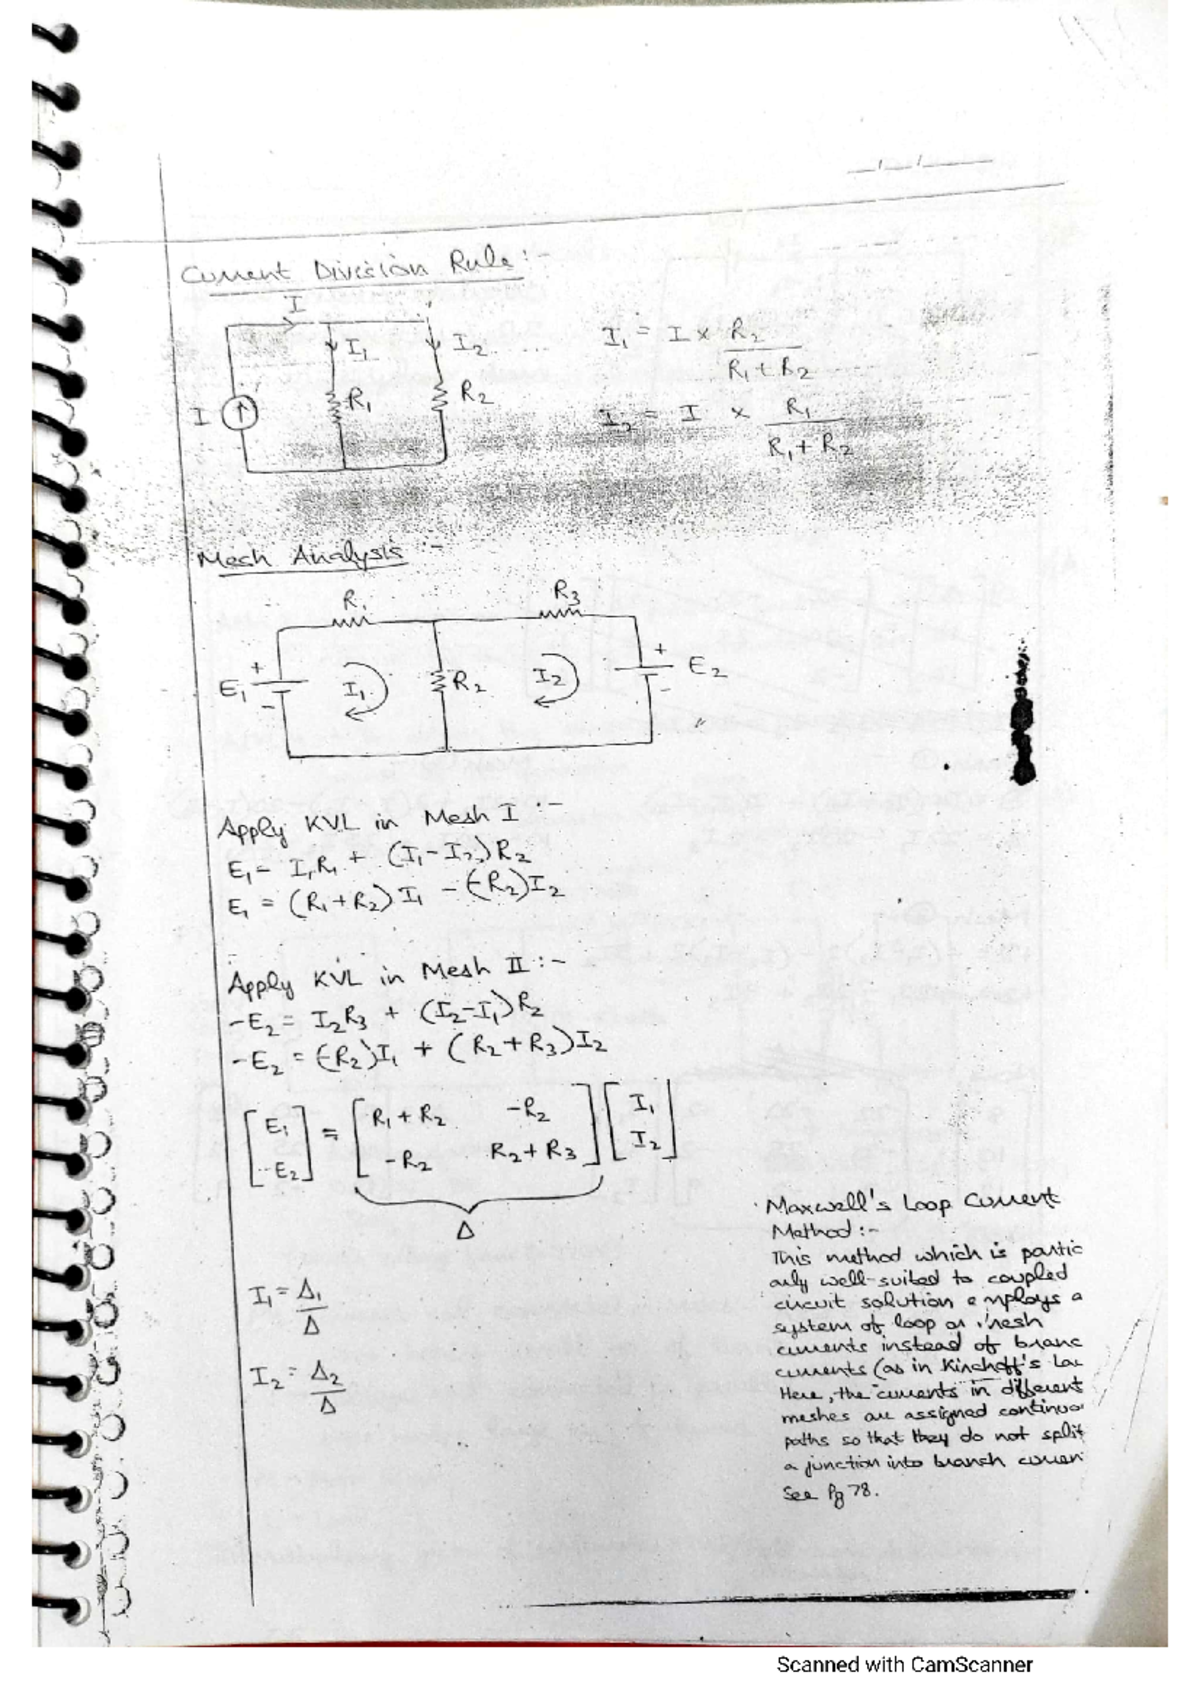 Current Division Rule :-
I
I₁ I₂ ...
I R₁ R₂
I₁ = I x R₂ / R₁ + R₂
I₂ = I x R₁ / R₁ + R₂
Mesh Analysis :-
R₁ R₃
+ +
E₁ I₁ R₂ I₂ E₂
- -
Apply KVL in Mesh I :-
E₁ = I₁R₁ + (I₁-I₂)R₂
E₁ = (R₁+R₂)I₁ - (-R₂)I₂
Apply KVL in Mesh II :-
-E₂ = I₂R₃ + (I₂-I₁)R₂
-E₂ = (-R₂)I₁ + (R₂+R₃)I₂
[E₁] = [R₁+R₂ -R₂] [I₁]
[-E₂] [-R₂ R₂+R₃] [I₂]
Δ
I₁ = Δ₁/Δ
I₂ = Δ₂/Δ
Maxwell's Loop Current
Method :-
This method which is partic
arly well-suited to coupled
circuit solution employs a
system of loop or mesh
currents instead of branc
currents (as in Kirchoff's La
Here, the currents in different
meshes are assigned continuo
paths so that they do not split
a junction into branch curren
See Pg 78.
Scanned with CamScanner